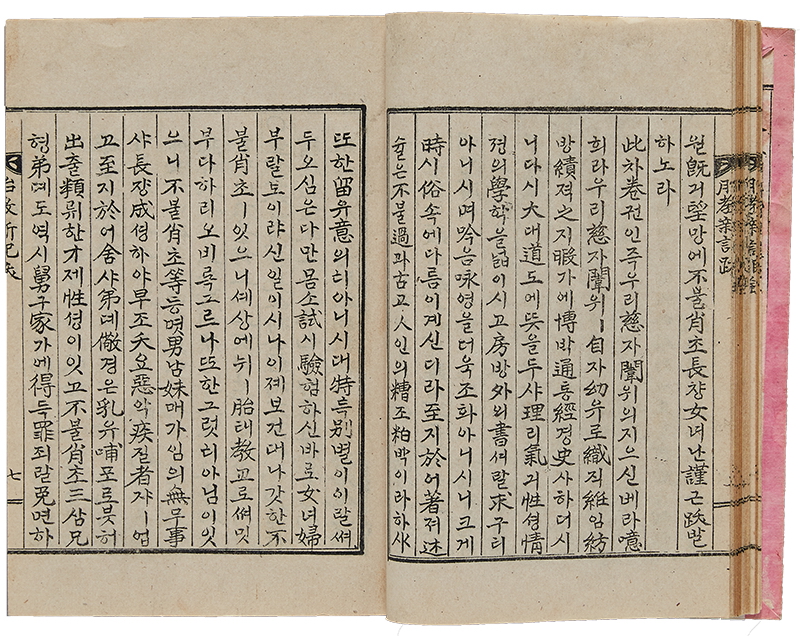 원旣긔望망에不불肖초長쟝女녀난謹근跋발
하노라
此차卷권인즉우리慈자闈위의지으신베라噫
희라우리慈자闈위ㅣ自자幼유로織직紝임紡
방績젹之지暇가에博박通통經경史사하더시
니다시大대道도에뜻을두샤理리氣긔性셩情
졍의學학을닑이시고房방外외의書셔랄求구티
아니시며吟음咏영을더욱조화아니시니크게
時시俗속에다름이계신디라至지於어著져述
슐은不불過과古고人인의糟조粕박이라하사
또한留유意의티아니시대特특別별이이랄쎠
두오심은다만몸소試시驗험하신바로女녀婦
부랄뵈이랴신일이시나이졔보건대나갓한不
불肖초ㅣ잇으니셰샹에뉘ㅣ胎태敎교로쎠밋
부다하리오비록그르나또한그럿티아님이잇
으니不불肖초等등몃男남妹매가임의無무事
샤長쟝成셩하야早조夭요惡악疾질者쟈ㅣ업
고至지於어舍샤弟뎨儆경은乳유哺포로붓허
出츌類류한才재性셩이잇고不불肖초三삼兄
형弟뎨도역시舅구家가에得득罪죄랄免면하
七